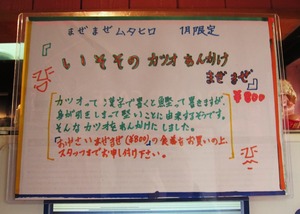 まぜまぜムタヒロ 1月限定
『いそその カツオあん掛け
まぜまぜ』
¥800
カツオって漢字で書くと鰹って書きますが
身が引きしまって堅いことに由来するそうです。
そんなカツオをあん掛けにしました。
『おやさいまぜまぜ(¥800)』の食券をお買いの上、
スタッフまでお申し付け下さい。